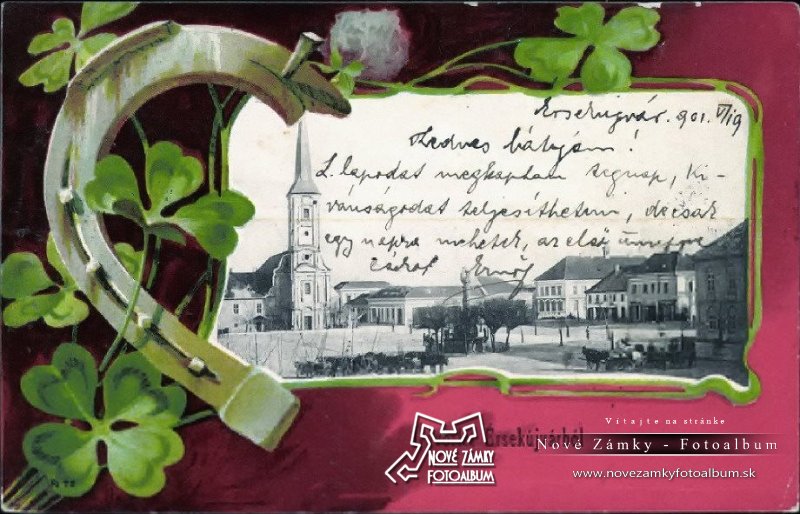 Érsekujvár. 901. V/19
Kedves bátyám!
L. lapodat megkaptam tegnap, ki-
vánságodat teljesíthetem, de csak
egy napra mehetek, az első ünnepre
csókol Ernő
Érsekújvárból
NOVÉ ZÁMKY
FOTOALBUM
Vítajte na stránke
Nové Zámky - Fotoalbum
www.novezamkyfotoalbum.sk